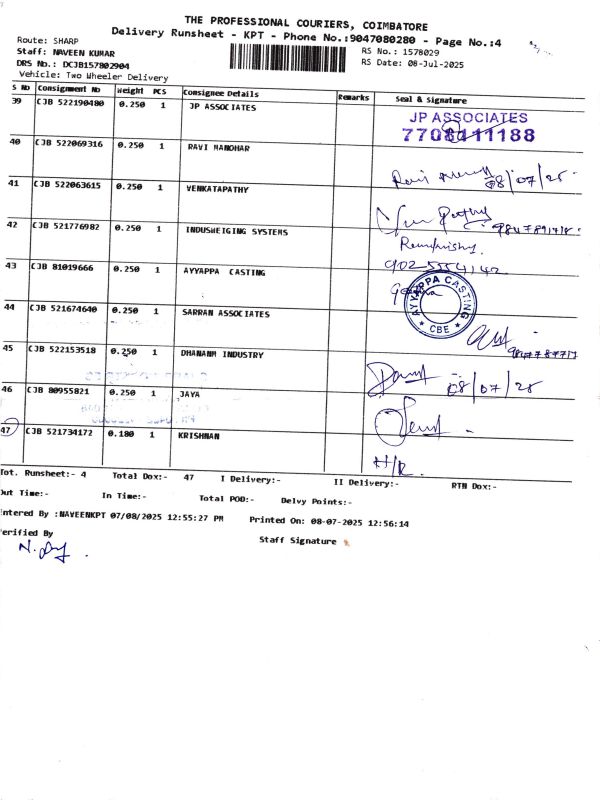 THE PROFESSIONAL COURIERS, COIMBATORE
Delivery Runsheet - KPT - Phone No.:9047080280 - Page No.:4
Route: SHARP
Staff: NAVEEN KUMAR
DRS No.: DCJB157802904
Vehicle: Two Wheeler Delivery
RS No.: 1578029
RS Date: 08-Jul-2025
S No Consignment No Weight PCS Consignee Details Remarks Seal & Signature
39 CJB 522190480 0.250 1 JP ASSOCIATES
JP ASSOCIATES
40 CJB 522069316 0.250 1 RAVI MANOHAR
08/07/25
41 CJB 522063615 0.250 1 VENKATAPATHY
42 CJB 521776982 0.250 1 INDUSWEIGING SYSTEMS
43 CJB 81019666 0.250 1 AYYAPPA CASTING
AYYAPPA CASTING
* CBE *
44 CJB 521674640 0.250 1 SARRAN ASSOCIATES
45 CJB 522153518 0.250 1 DHANANM INDUSTRY
08/07/25
46 CJB 80955821 0.250 1 JAYA
47 CJB 521734172 0.180 1 KRISHNAN
H/R.
Tot. Runsheet:- 4 Total Dox:- 47 I Delivery:- II Delivery:- RTN Dox:-
Out Time:- In Time:- Total POD:- Delvy Points:-
Entered By :NAVEENKPT 07/08/2025 12:55:27 PM Printed On: 08-07-2025 12:56:14
Verified By
Staff Signature